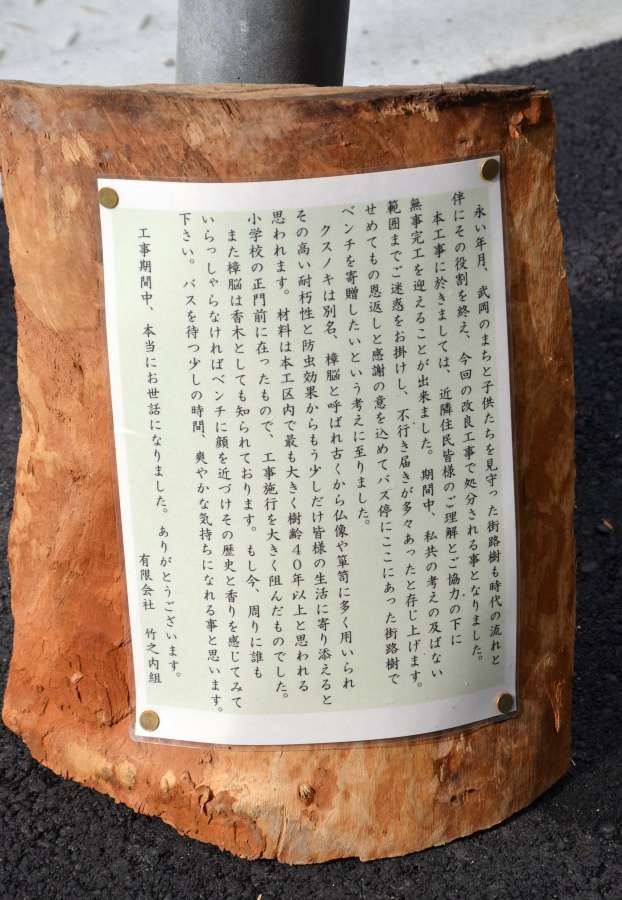 永い年月、武岡のまちと子供たちを見守った街路樹も時代の流れと
伴にその役割を終え、今回の改良工事で処分される事となりました。
本工事に於きましては、近隣住民皆様のご理解とご協力の下に
無事完工を迎えることが出来ました。期間中、私共の考えの及ばない
範囲までご迷惑をお掛けし、不行き届きが多々あったと存じ上げます。
せめてもの恩返しと感謝の意を込めてバス停にここにあった街路樹で
ベンチを寄贈したいという考えに至りました。
クスノキは別名、樟脳と呼ばれ古くから仏像や箪笥に多く用いられ
その高い耐朽性と防虫効果からもう少しだけ皆様の生活に寄り添えると
思われます。材料は本工区内で最も大きく樹齢40年以上と思われる
小学校の正門前に在ったもので、工事施行を大きく阻んだものでした。
また樟脳は香木としても知られております。もし今、周りに誰も
いらっしゃらなければベンチに顔を近づけその歴史と香りを感じてみて
下さい。バスを待つ少しの時間、爽やかな気持ちになれる事と思います。
工事期間中、本当にお世話になりました。ありがとうございます。
有限会社 竹之内組